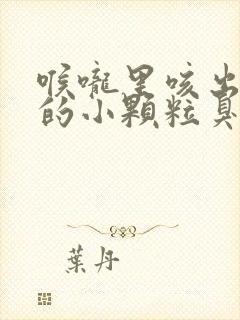 喉嚨里咳出
的小顆粒臭
葉丹